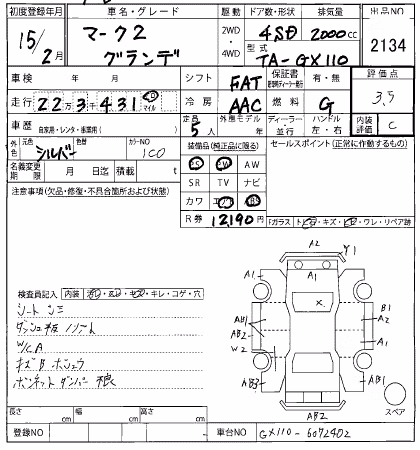 初度登録年月 車名・グレード 駆動 ドア数・形状 排気量 出品NO
15/2月 マーク2 グランデ 2WD・4WD 4SD 2000cc 2134
型式 TA-GX110
車検 年 月 シフト FAT 保証書 有・無 評価点
走行 22万3千431 マイル 冷房 AAC 燃料 G 3.5
車歴 自家用・レンタ・事業用( ) 定員 5人 外車モデル 年 ディーラー・並行 ハンドル 左・右 内装評価 C
外色 元色 シルバー 色替 カラーNO 1C0 装備品(純正品に限る) セールスポイント(正常に作動するもの)
名義変更期限 月 日迄 積載 t PS PW AW
SR TV ナビ
注意事項(欠品・修復・不具合箇所および状態) カワ エアB ABS
R券 12,190円
ガラス トビ・キズ・ヒビ・ワレ・リペア跡
A2 Y1
A1 A1
×
B1
AB1 A2
AB2
W2 A1
AB3 AB1
AB2
スペア
検査員記入 内装 キレ・コゲ・穴
シートシミ
ダッシュ板ノリアト
W/CA
キズBホシュウ
ボンネットダンパー 狼
長さ cm 幅 cm 高さ cm
登録NO 車台NO GX110-6072402